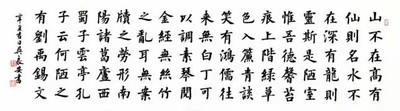 山不在高有
仙則名水不
在深有龍則
靈斯是陋室
惟吾德馨苔
痕上階綠草
色入簾青談
笑有鴻儒往
來無白丁可
以調素琴閱
金經無絲竹
之亂耳無案
牘之勞形南
陽諸葛廬西
蜀子雲亭孔
子云何陋之
有劉禹錫文